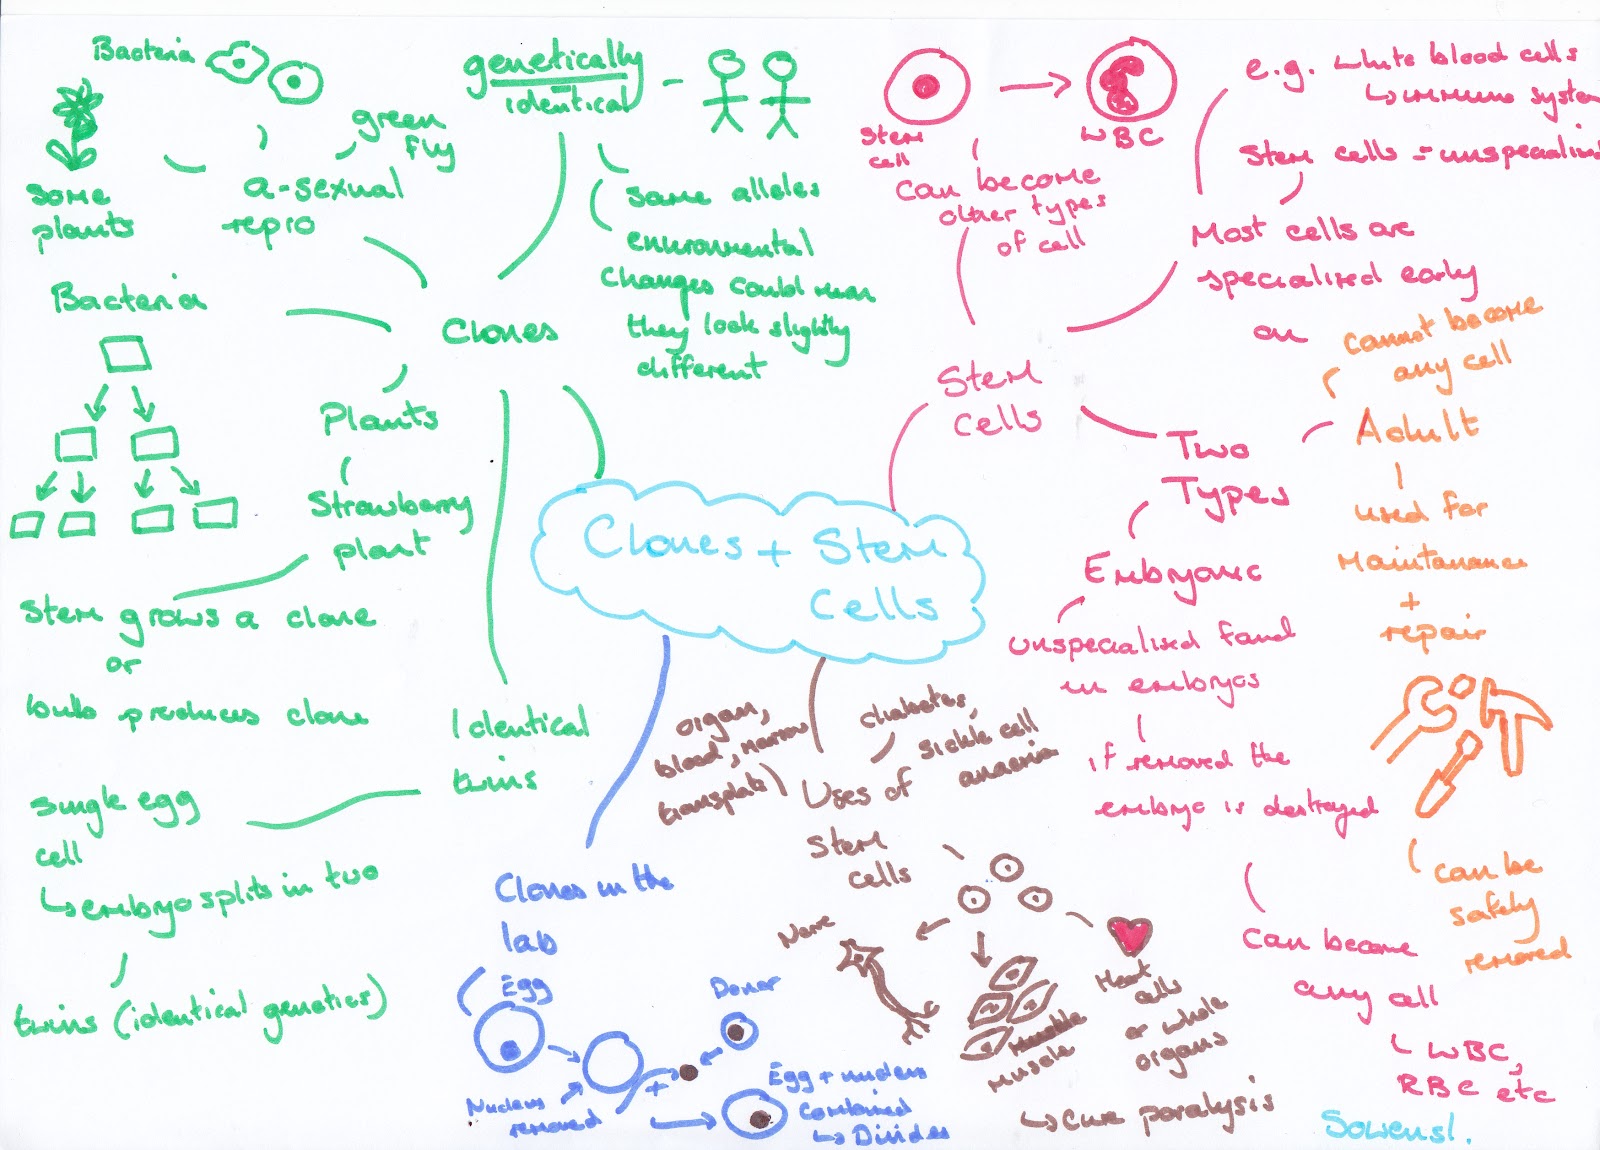 Clones + Stem
Cells
Clones
genetically
identical
same alleles
environmental
changes could mean
they look slightly
different
a-sexual
repro
Bacteria
green
fly
some
plants
Bacteria
Plants
Strawberry
plant
Stem grows a clone
or
bulb produces clone
Identical
twins
single egg
cell
↳embryo splits in two
twins (identical genetics)
Stem
Cells
Stem
cell
WBC
can become
other types
of cell
e.g. white blood cells
↳immune system
Stem cells = unspecialised
Most cells are
specialised early
on
Two
Types
Adult
cannot become
any cell
used for
Maintanance
+
repair
can be
safely
removed
Embryonic
unspecialised found
in embryos
if removed the
embryo is destroyed
can become
any cell
↳ WBC,
RBC etc
Uses of
stem
cells
organ,
blood, marrow
transplants
diabetes,
sickle cell
anaemia
Nerve
Muscle
Heart
cells
or whole
organs
↳ cure paralysis
Clones in the
lab
Egg
Nucleus
removed
+
Donor
Egg + nucleus
combined
↳ Divides
Sowensl.